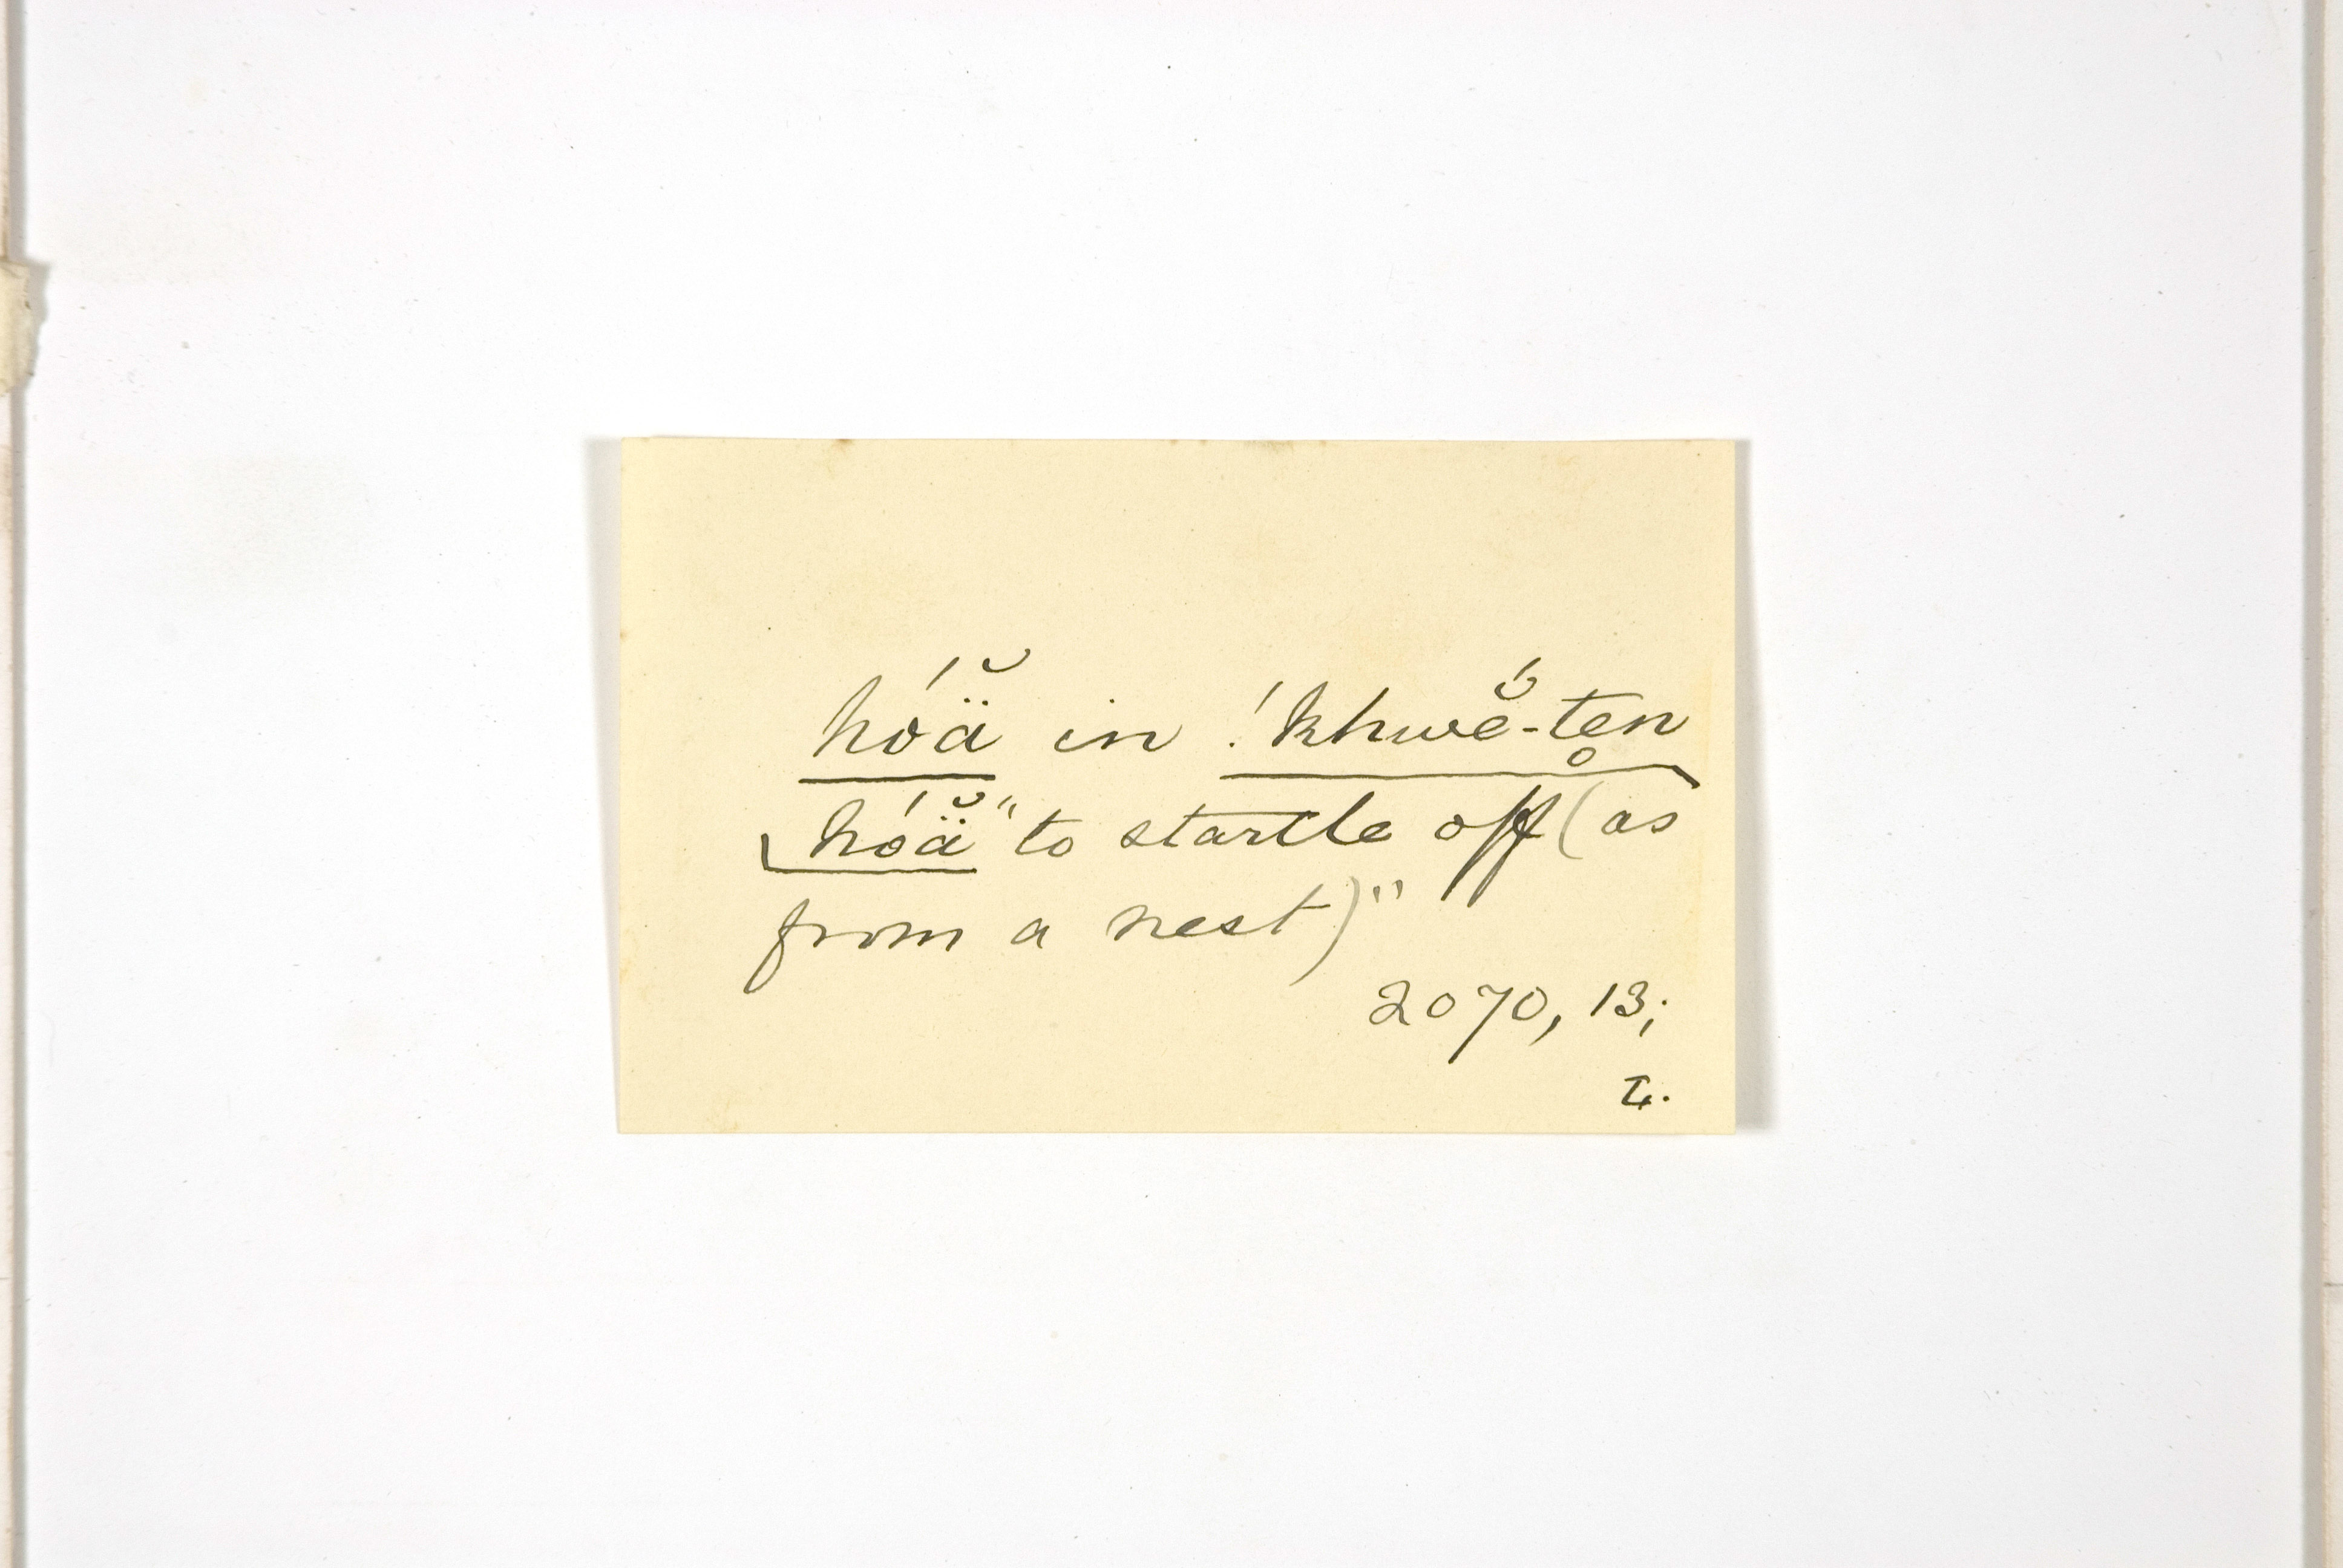 hóä̆ in !khwĕ́-te̥n
hóä̆ "to startle off (as
from a nest)"
2070, 13;
L.